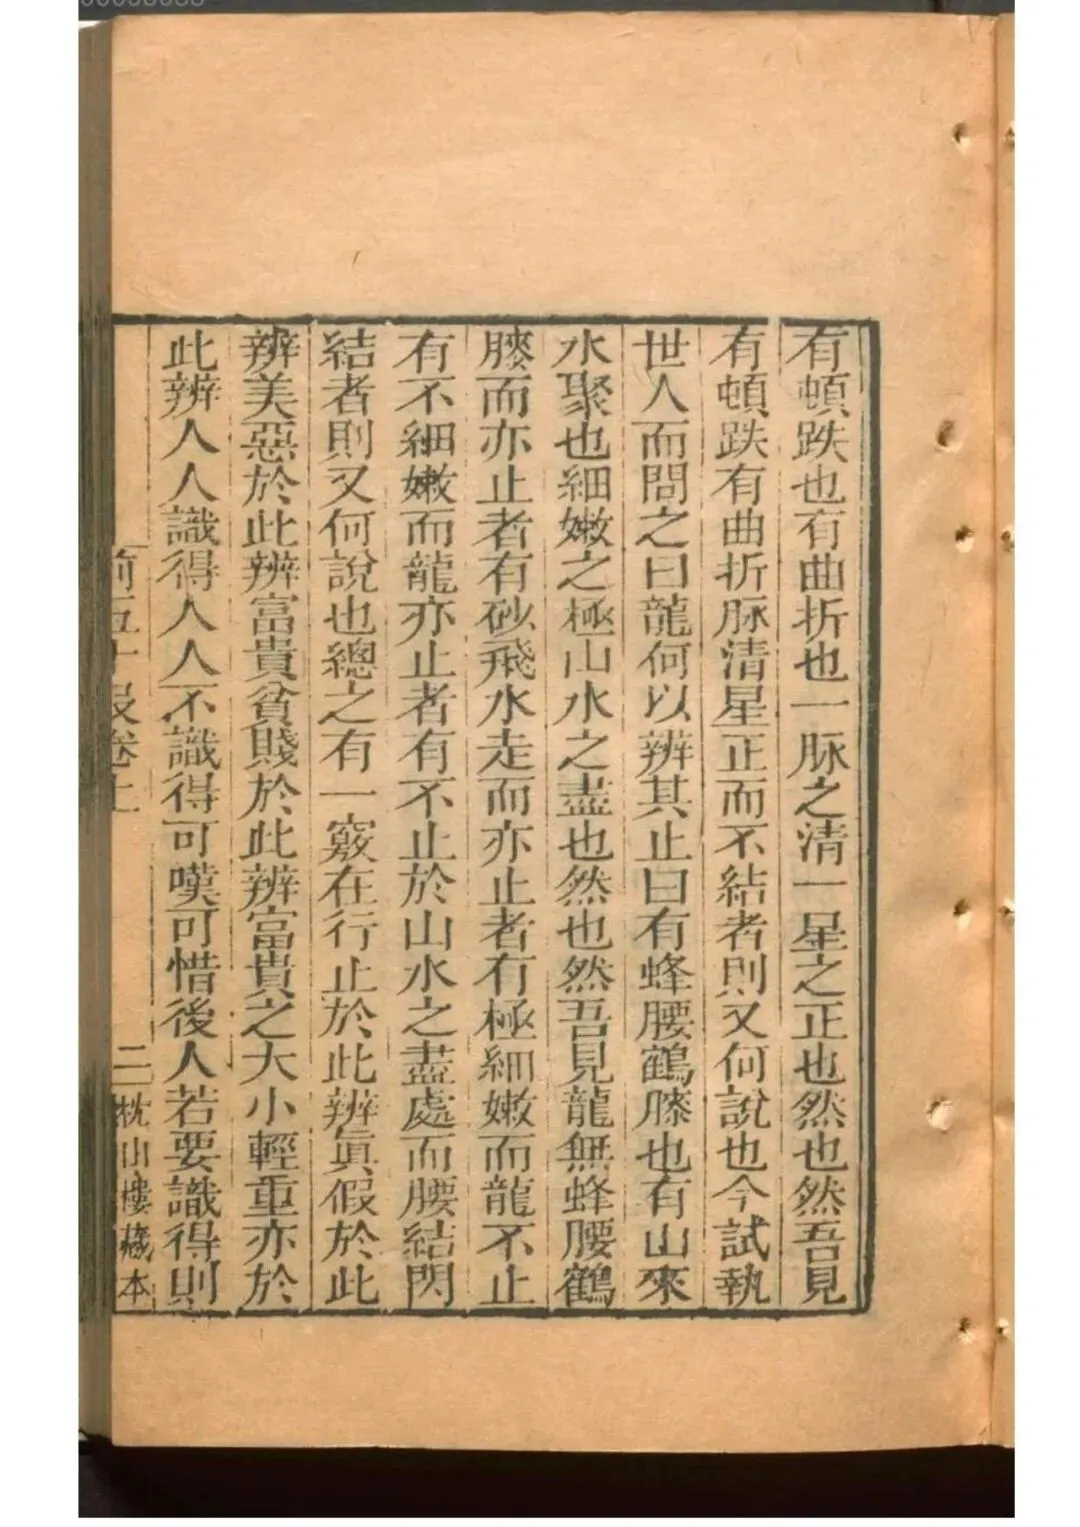 有頓跌也有曲折也一脉之清一星之正也然也然吾見
有頓跌有曲折脉清星正而不結者則又何說也今試執
世人而問之曰龍何以辨其止曰有蜂腰鶴膝也有山來
水聚也細嫩之極山水之盡也然也然吾見龍無蜂腰鶴
膝而亦止者有砂飛水走而亦止者有極細嫩而龍不止
有不細嫩而龍亦止者有不止於山水之盡處而腰結閃
結者則又何說也總之有一竅在行止於此辨眞假於此
辨美惡於此辨富貴貧賤於此辨富貴之大小輕重亦於
此辨人人識得人人不識得可嘆可惜後人若要識得則
五十段卷上 二 枕山樓藏本